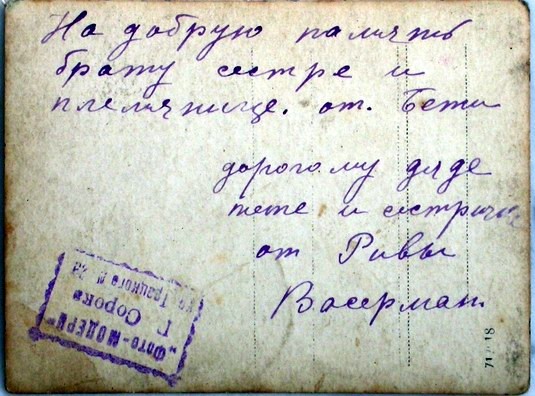 На добрую память
брату сестре и
племяннице. от. Бети
дорогому дяде
тете и сестричке
от Ривы
Васерман.
"ФОТО-МОДЕРН"
Г. Сороки
71 18